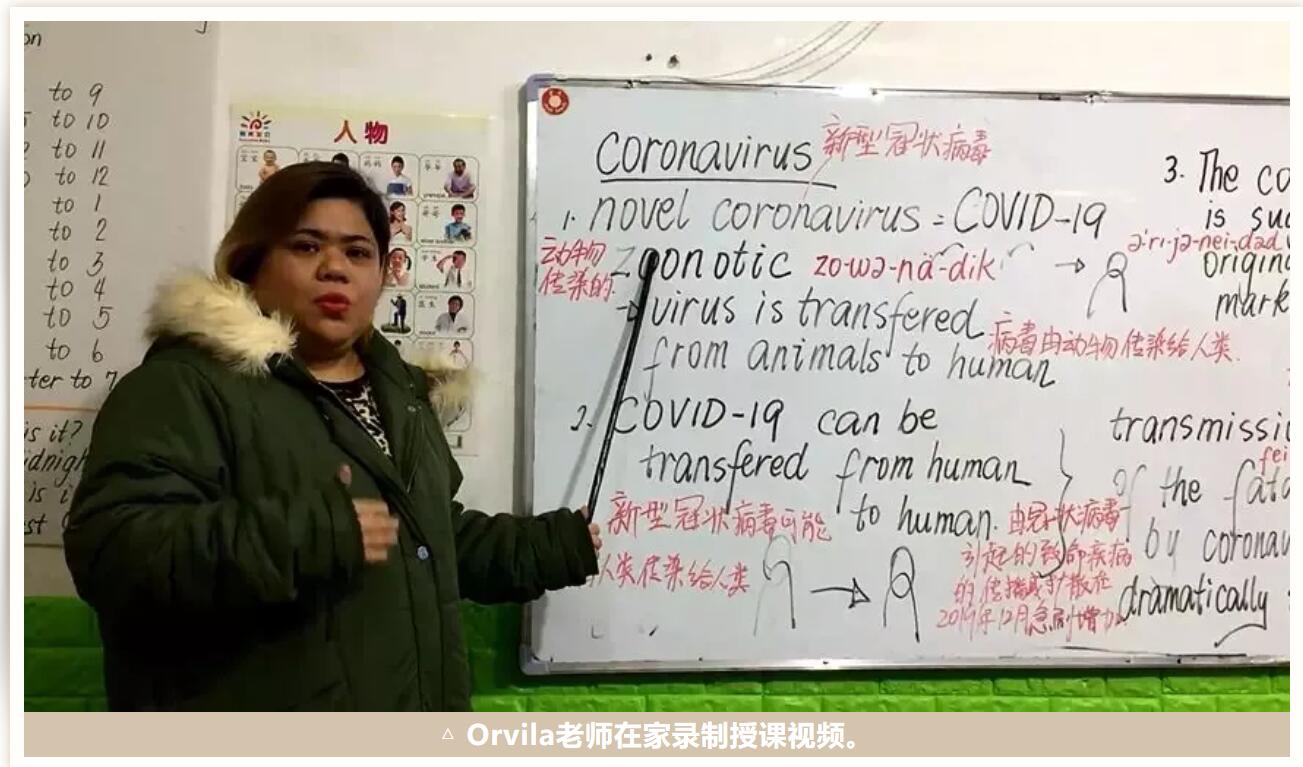 on
to 9
to 10
to 11
to 12
to 1
to 2
to 3
to 4
to 5
to 6
ter to 7
is it?
idnigh
is i
st
人物
coronavirus 新型冠状病毒
1. novel coronavirus = COVID-19
动物
传染的
zoonotic zo-wə-nä-dik
→ virus is transfered
from animals to human
病毒由动物传染给人类.
2. COVID-19 can be
transfered from human
to human.
新型冠状病毒可能
人类传染给人类
3. The co
is suc
ə'ri-jə-nei-dad
origina
marke
transmissi
of the fata
by coronav
dramatically
由冠状病毒
引起的致命疾病
的传播或扩散在
2019年12月急剧增加
△ Orvila老师在家录制授课视频。